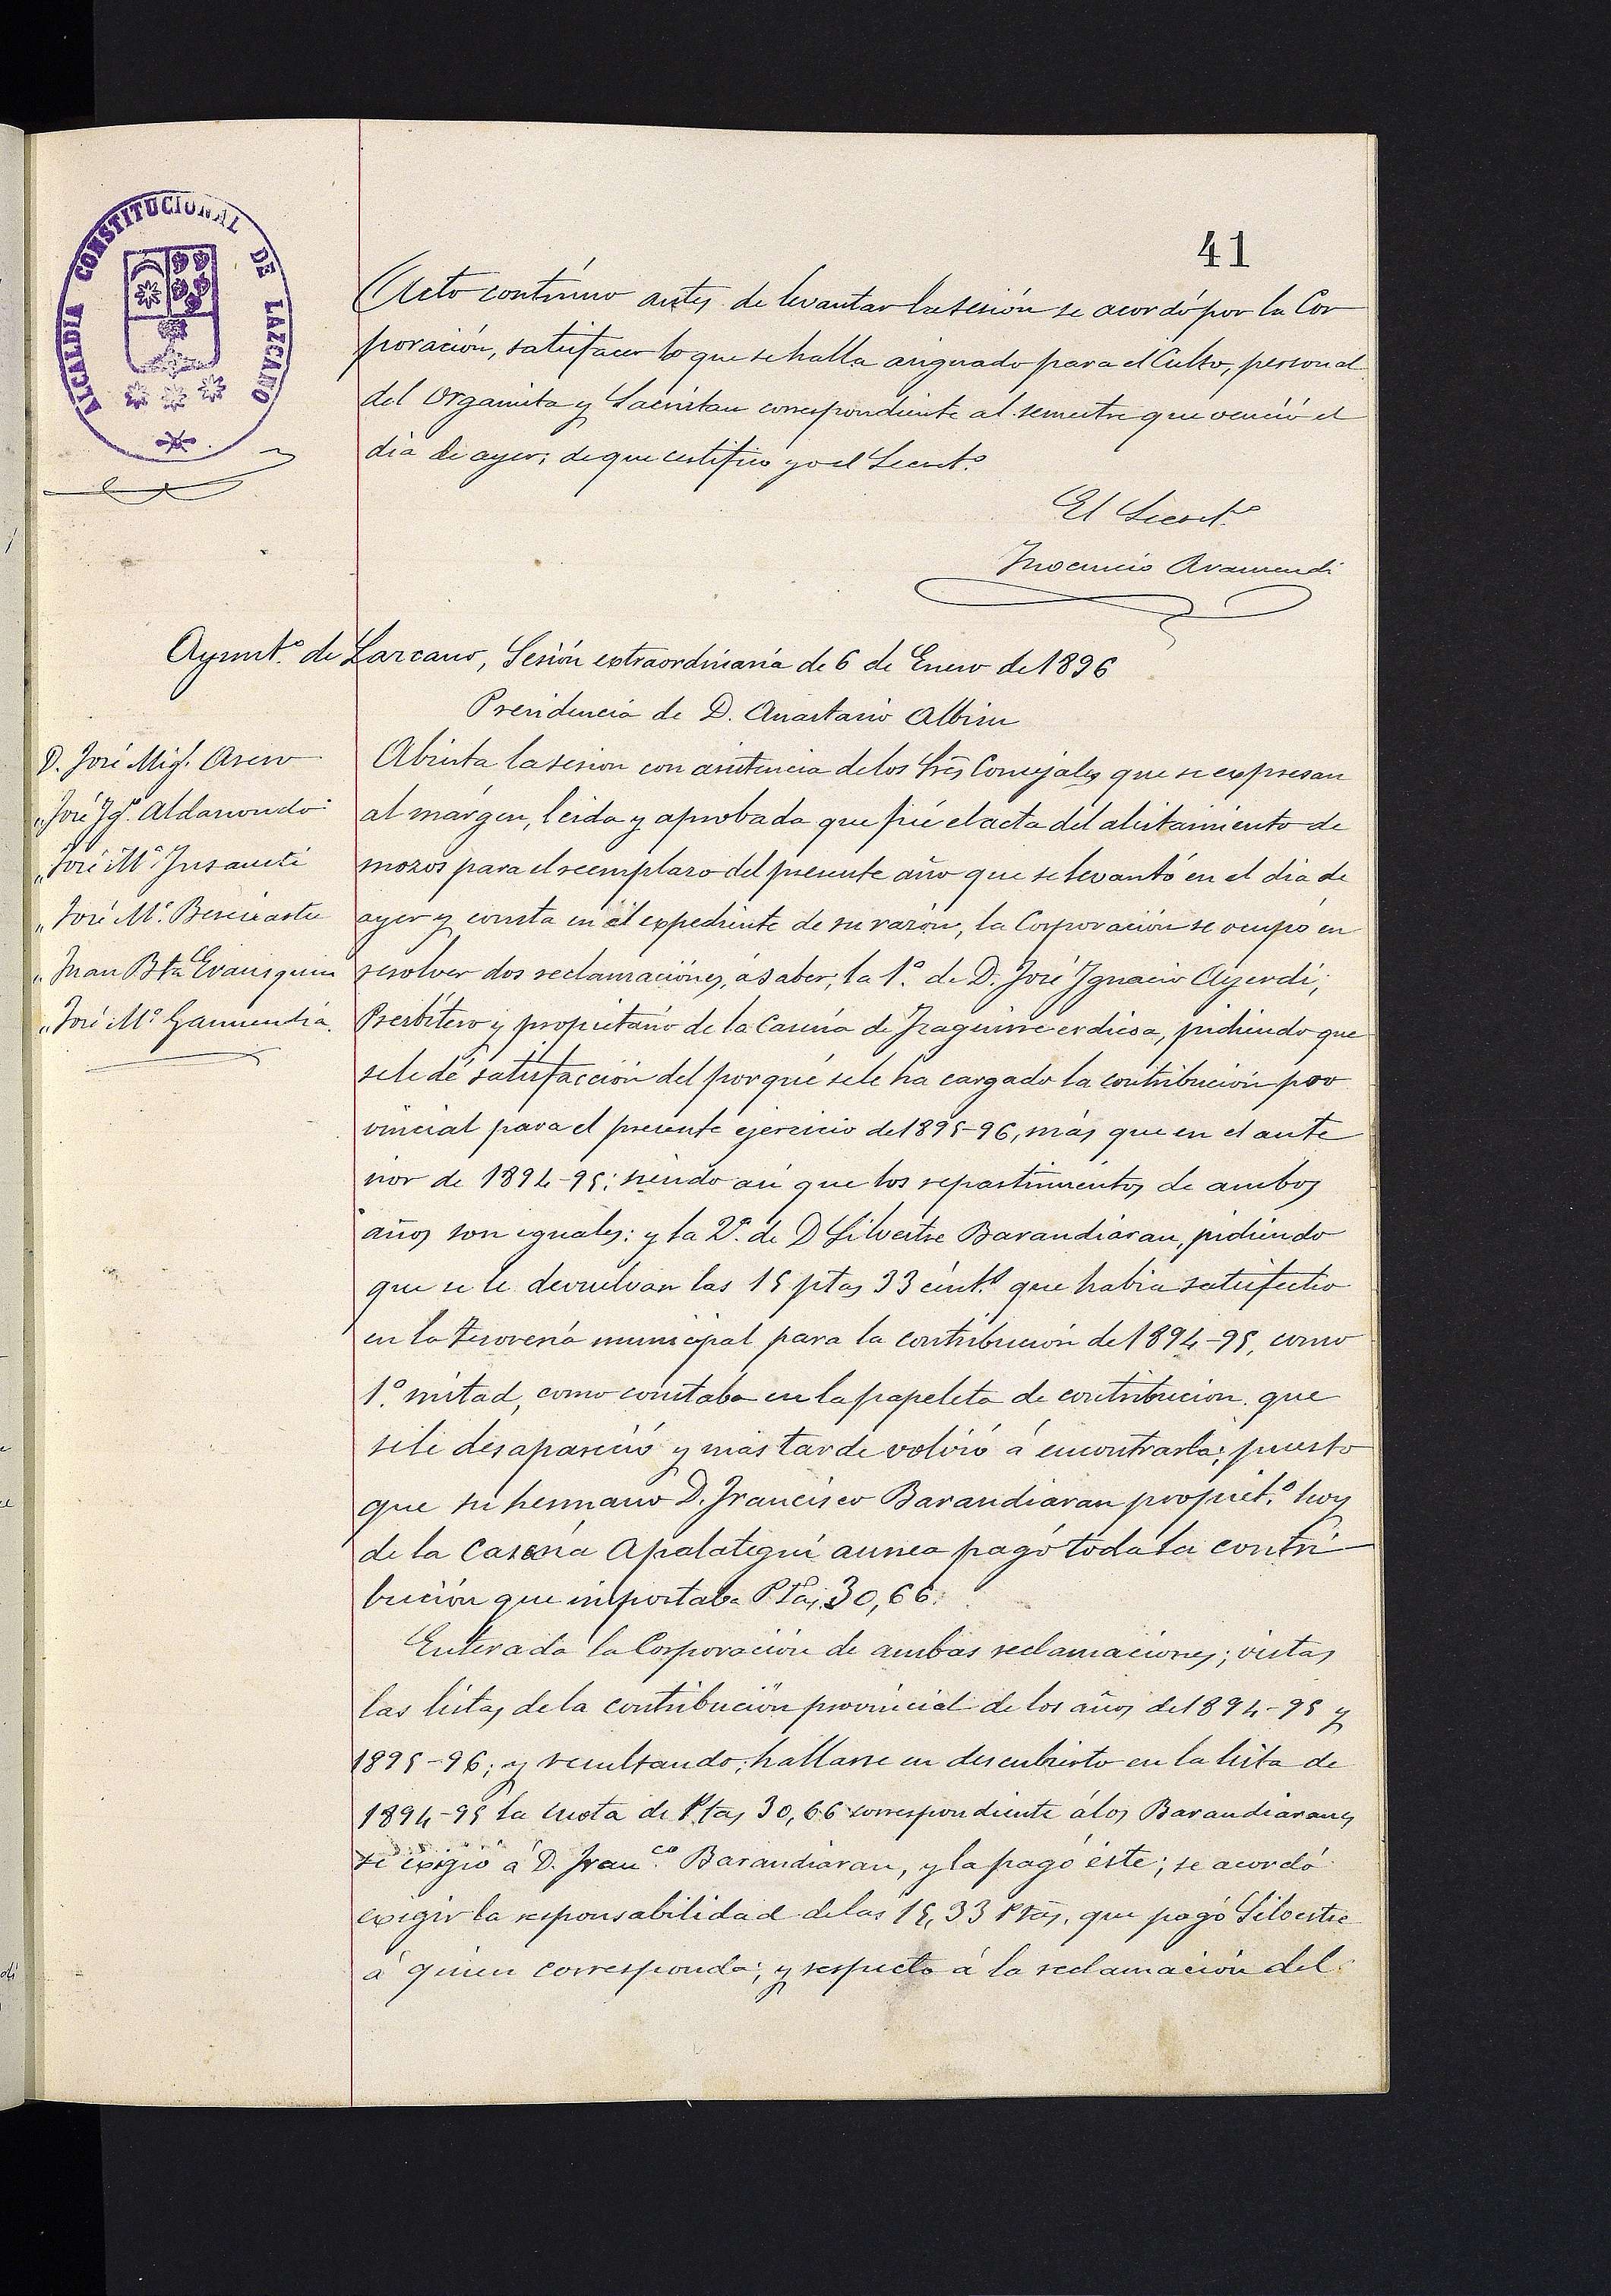 41
ALCALDIA CONSTITUCIONAL DE LAZCANO
Acto contínuo antes de levantar la sesión se acordó por la Cor
poración, satisfacer lo que se halla asignado para el Culto, personal
del Organista y Sacristan correspondiente al semestre que venció el
dia de ayer; de que certifico yo el Secret.º
El Secret.º
Inocencio Aramendi
Ayunt.º de Lazcano, Sesión extraordinaria de 6 de Enero de 1896
Presidencia de D. Anastasio Albisu
D. José Mig.l
„ José Ig.º Aldasoro
„ José M.ª Insausti
„ José M.ª Beseiartu
„ Juan Bta
„ José M.ª Garmendia.
Abierta la sesion con asistencia de los Srs Concejales que se expresan
al márgen, leida y aprobada que fué el acta del alistamiento de
mozos para el reemplazo del presente año que se levantó en el dia de
ayer y consta en el expediente de su razón, la Corporación se ocupó en
resolver dos reclamaciónes, á saber; la 1.ª de D. José Ignacio Ayerdi,
Presbítero y propietario de la Caseria de Izaguirre erdicoa, pidiendo que
se le dé satisfacción del porque se le ha cargado la contribución pro
vincial para el presente ejercicio de 1895-96, más que en el ante
rior de 1894-95; siendo asi que los repartimientos de ambos
años son iguales: y la 2ª. de D Silvestre Barandiaran, pidiendo
que se le devuelvan las 15 ptas 33 cént.s que habia satisfecho
en la tesoreria municipal para la contribución de 1894-95, como
1.ª mitad, como constaba en la papeleta de contribución que
se le desapareció y más tarde volvió á encontrarla; puesto
que su hermano D. Francisco Barandiaran propiet.º hoy
de la Caseria Apalategui aunea pagó toda la contri
bución que importaba Ptas, 30,66.
Enterada la Corporación de ambas reclamaciones; vistas
las listas de la contribución provincial de los años de 1894-95 y
1895-96; y resultando; hallarse en descubierto en la lista de
1894-95 la cuota de Ptas 30,66 correspondiente á los Barandiaranes
se exigió á D. Fran.co Barandiaran, y la pagó éste; se acordó
exigir la responsabilidad de las 15,33 Ptas, que pagó Silvestre
á quien corresponda; y respecto á la reclamación del